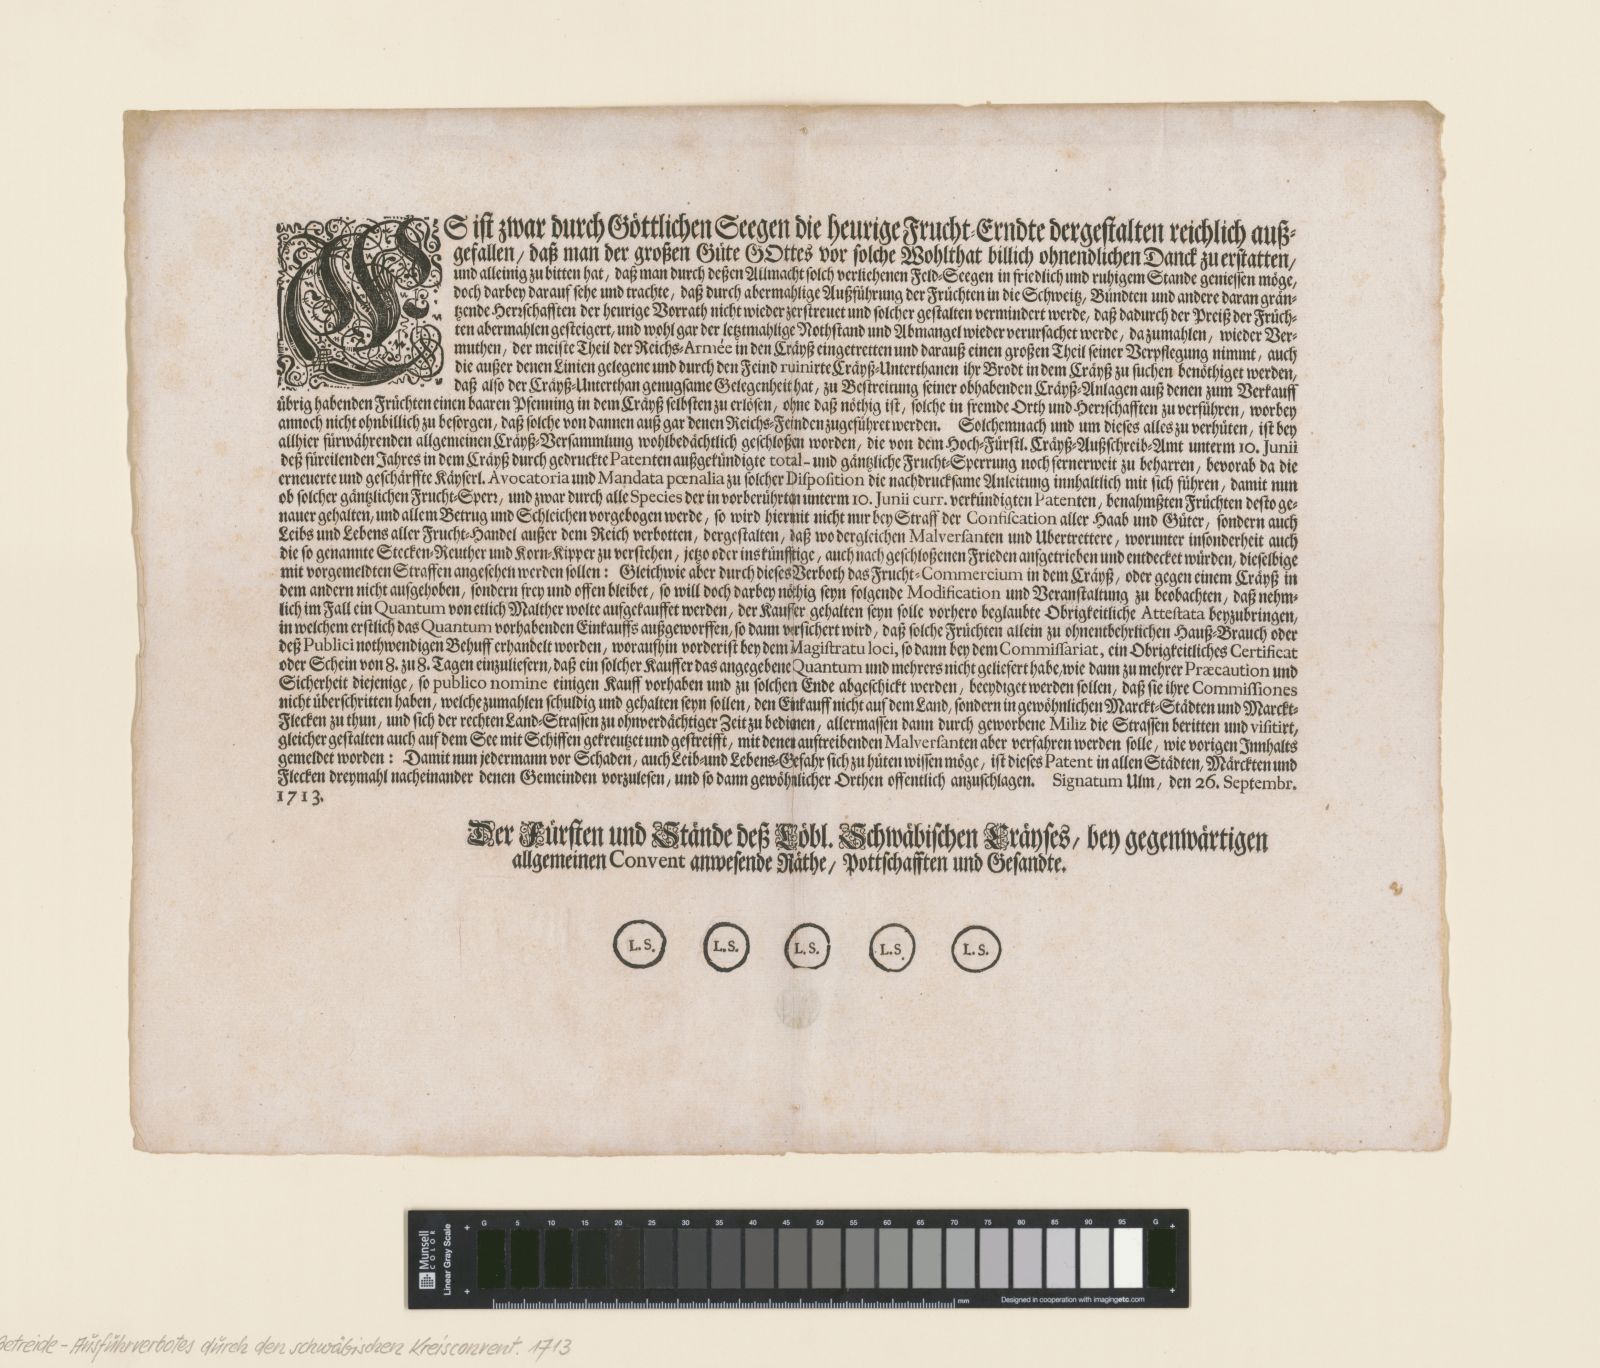 ES ist zwar durch Göttlichen Seegen die heurige Frucht-Erndte dergestalten reichlich auß-
gefallen / daß man der großen Güte GOttes vor solche Wohlthat billich ohnendlichen Danck zu erstatten /
und alleinig zu bitten hat / daß man durch deßen Allmacht solch verliehenen Feld-Seegen in friedlich und ruhigem Stande geniessen möge,
doch darbey darauf sehe und trachte, daß durch abermahlige Außführung der Früchten in die Schweitz, Bündten und andere daran grän-
tzende Herrschafften der heurige Vorrath nicht wieder zerstreuet und solcher gestalten vermindert werde, daß dadurch der Preiß der Früch-
ten abermahlen gesteigert, und wohl gar der letztmahlige Nothstand und Abmangel wieder verursachet werde, dazumahlen, wieder Ver-
muthen, der meiste Theil der Reichs-Armée in den Cräyß eingetretten und darauß einen großen Theil seiner Verpflegung nimmt, auch
die außer denen Linien gelegene und durch den Feind ruinirte Cräyß-Unterthanen ihr Brodt in dem Cräyß zu suchen benöthiget werden,
daß also der Cräyß-Unterthan genugsame Gelegenheit hat, zu Bestreitung seiner obhabenden Cräyß-Anlagen auß denen zum Verkauff
übrig habenden Früchten einen baaren Pfenning in dem Cräyß selbsten zu erlösen, ohne daß nöthig ist, solche in fremde Orth und Herrschafften zu verführen, worbey
annoch nicht ohnbillich zu besorgen, daß solche von dannen auß gar denen Reichs-Feinden zugeführet werden. Solchemnach und um dieses alles zu verhüten, ist bey
allhier fürwährenden allgemeinen Cräyß-Versammlung wohlbedächtlich geschloßen worden, die von dem Hoch-Fürstl. Cräyß-Außschreib-Amt unterm 10. Junii
deß füreilenden Jahres in dem Cräyß durch gedruckte Patenten außgekündigte total- und gäntzliche Frucht-Sperrung noch fernerweit zu beharren, bevorab da die
erneuerte und geschärffte Käyserl. Avocatoria und Mandata pœnalia zu solcher Disposition die nachdrucksame Anleitung innhaltlich mit sich führen, damit nun
ob solcher gäntzlichen Frucht-Sperr, und zwar durch alle Species der in vorberührten unterm 10. Junii curr. verkündigten Patenten, benahmßten Früchten desto ge-
nauer gehalten, und allem Betrug und Schleichen vorgebogen werde, so wird hiermit nicht nur bey Straff der Confiscation aller Haab und Güter, sondern auch
Leibs und Lebens aller Frucht-Handel außer dem Reich verbotten, dergestalten, daß wo dergleichen Malversanten und Ubertrettere, worunter insonderheit auch
die so genannte Stecken-Reuther und Korn-Kipper zu verstehen, jetzo oder inskünfftige, auch nach geschloßenen Frieden aufgetrieben und entdecket würden, dieselbige
mit vorgemeldten Straffen angesehen werden sollen : Gleichwie aber durch dieses Verboth das Frucht-Commercium in dem Cräyß, oder gegen einem Cräyß in
dem andern nicht aufgehoben, sondern frey und offen bleibet, so will doch darbey nöthig seyn folgende Modification und Veranstaltung zu beobachten, daß nehm-
lich im Fall ein Quantum von etlich Malther wolte aufgekauffet werden, der Kauffer gehalten seyn solle vorhero beglaubte Obrigkeitliche Attestata beyzubringen,
in welchem erstlich das Quantum vorhabenden Einkauffs außgeworffen, so dann versichert wird, daß solche Früchten allein zu ohnentbehrlichen Hauß-Brauch oder
deß Publici nothwendigen Behuff erhandelt worden, woraufhin vorderist bey dem Magistratu loci, so dann bey dem Commissariat, ein Obrigkeitliches Certificat
oder Schein von 8. zu 8. Tagen einzuliefern, daß ein solcher Kauffer das angegebene Quantum und mehrers nicht geliefert habe, wie dann zu mehrer Præcaution und
Sicherheit diejenige, so publico nomine einigen Kauff vorhaben und zu solchen Ende abgeschickt werden, beeydiget werden sollen, daß sie ihre Commissiones
nicht überschritten haben, welche zumahlen schuldig und gehalten seyn sollen, den Einkauff nicht auf dem Land, sondern in gewöhnlichen Marckt-Städten und Marckt-
Flecken zu thun, und sich der rechten Land-Strassen zu ohnverdächtiger Zeit zu bedienen, allermassen dann durch geworbene Miliz die Strassen beritten und visitirt,
gleicher gestalten auch auf dem See mit Schiffen gekreutzet und gestreifft, mit denen auftreibenden Malversanten aber verfahren werden solle, wie vorigen Innhalts
gemeldet worden : Damit nun jedermann vor Schaden, auch Leib- und Lebens-Gefahr sich zu hüten wissen möge, ist dieses Patent in allen Städten, Märckten und
Flecken dreymahl nacheinander denen Gemeinden vorzulesen, und so dann gewöhnlicher Orthen offentlich anzuschlagen. Signatum Ulm, den 26. Septembr.
1713.
Der Fürsten und Stände deß Löbl. Schwäbischen Cräyses / bey gegenwärtigen
allgemeinen Convent anwesende Räthe / Pottschafften und Gesandte.
L. S. L. S. L. S. L. S. L. S.
Munsell COLOR Linear Gray Scale
G 5 10 15 20 25 30 35 40 45 50 55 60 65 70 75 80 85 90 95 G
mm Designed in cooperation with imagingetc.com
Getreide-Ausfuhrverbotes durch den schwäbischen Kreisconvent. 1713